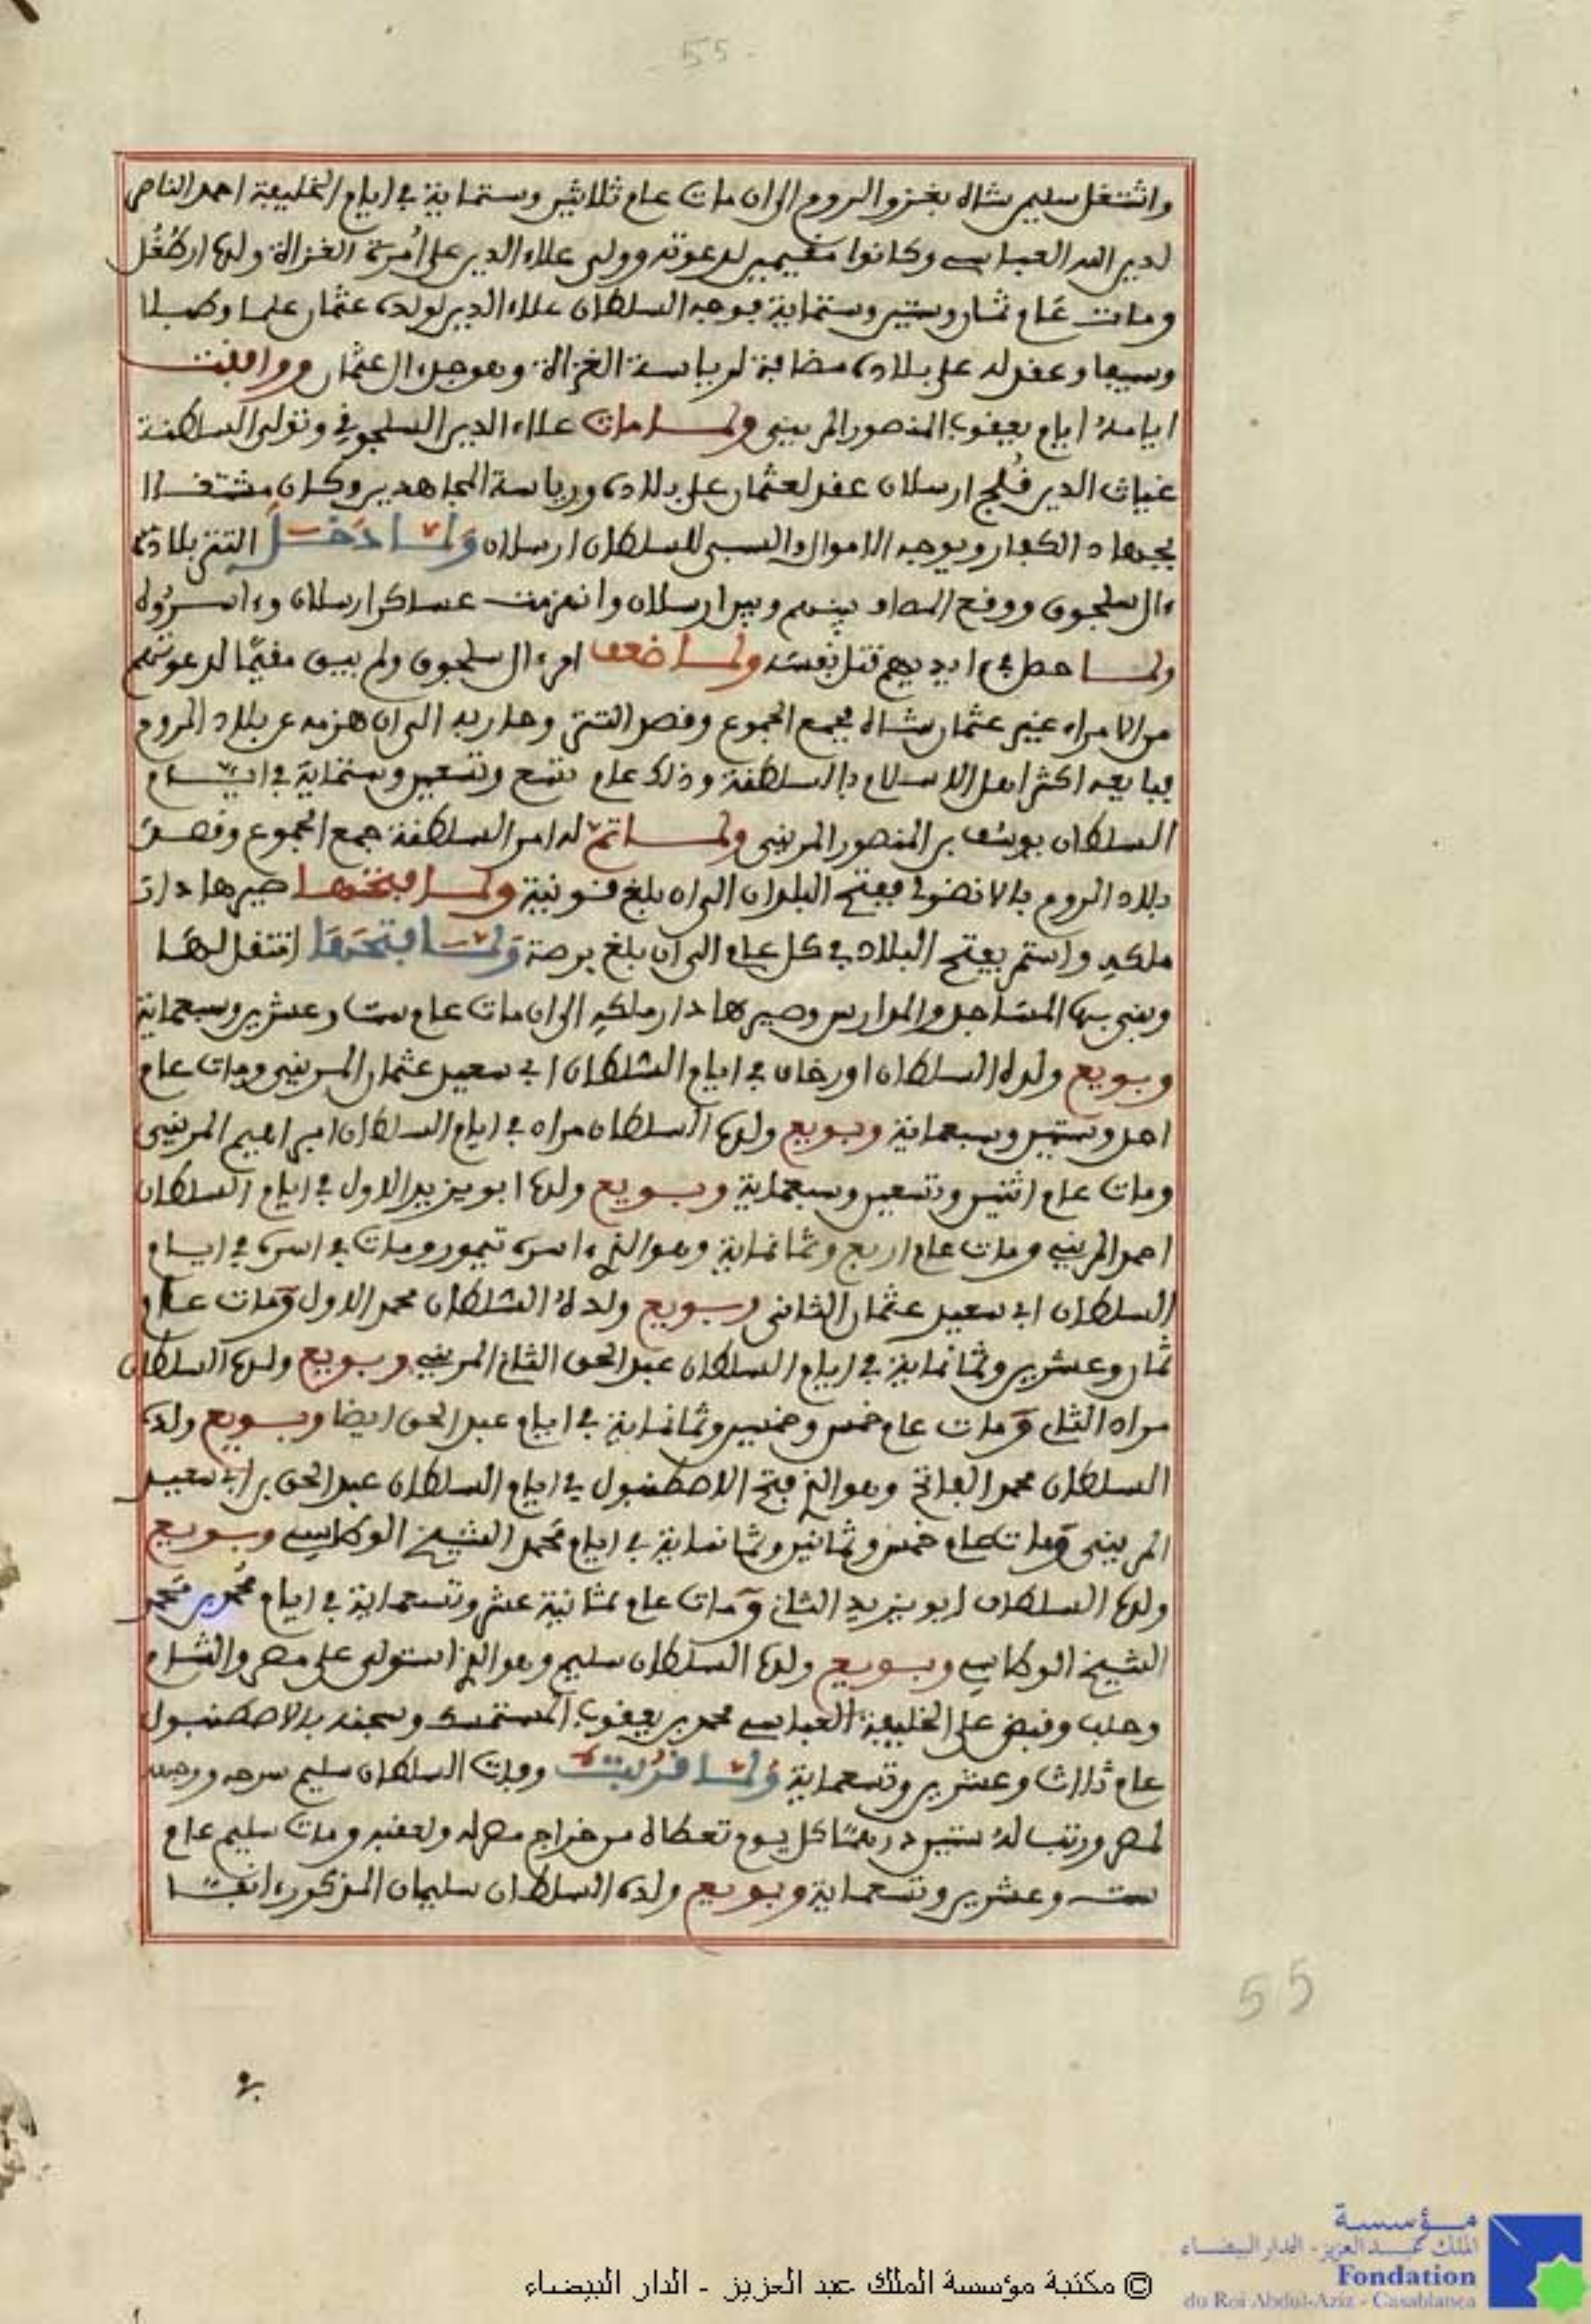 55
واشتغل سليم شاه بغزو الروم الى ان مات عام ثلاثين وستماية في ايام الخليفة احمد الناصر
لدين الله العباسي وكانوا مقيمين لدعوته وولى علاء الدين على امرة الغزاة ولده ارطغل
ومات عام ثمان وستين وستماية فوجه السلطان علاء الدين لولده عثمان علما وطبلا
وسيفا وعقد له على بلاده مضافة لرياسة الغزاة وهو جد ال عثمان ووافقت
ايامه ايام يعقوب المنصور المريني ولما مات علاء الدين السلجوقي وتولى السلطنة
غياث الدين قلج ارسلان عقد لعثمان على بلاده ورياسة المجاهدين وكان مشتغلا
بجهاد الكفار ويوجه الاموال والسبي للسلطان ارسلان ولما دخل التتر بلاد
ءال سلجوق ووقع المصاف بينهم وبين ارسلان وانهزمت عساكر ارسلان وءاسروه
ولما حصل في ايديهم قتل نفسه ولما ضعف امر ءال سلجوق ولم يبق مقيما لدعوتهم
من الامراء غير عثمان شاه فجمع الجموع وقصد التتر وحاربه الى ان هزمه عن بلاد الروم
فبايعه اكثر اهل الاسلام بالسلطنة وذلك عام تسع وتسعين وستماية في ايام
السلطان يوسف بن المنصور المريني ولما تم له امر السلطنة جمع الجموع وقصد
بلاد الروم بالانضول ففتح البلدان الى ان بلغ قونية ولما فتحها صيرها دار
ملكه واستمر يفتح البلاد في كل عام الى ان بلغ برصة ولما فتحها انتقل لها
وبنى بها المساجد والمدارس وصيرها دار ملكه الى ان مات عام ست وعشرين وسبعماية
وبويع ولده السلطان اورخان في ايام السلطان ابي سعيد عثمان المريني ومات عام
احد وستين وسبعماية وبويع ولده السلطان مراد في ايام السلطان ابراهيم المريني
ومات عام اثنين وتسعين وسبعماية وبويع ولده ابو يزيد الاول في ايام السلطان
احمد المريني ومات عام اربع وثمانماية وهو الذي ءاسره تيمور ومات في اسره في ايام
السلطان ابي سعيد عثمان الثاني وبويع ولده السلطان محمد الاول ومات عام
ثمان وعشرين وثمانماية في ايام السلطان عبد الحق الثاني المريني وبويع ولده السلطان
مراد الثاني ومات عام خمس وخمسين وثمانماية في ايام عبد الحق ايضا وبويع ولده
السلطان محمد الفاتح وهو الذي فتح الاصطنبول في ايام السلطان عبد الحق بن ابي سعيد
المريني ومات عام خمس وثمانين وثمانماية في ايام محمد الشيخ الوطاسي وبويع
ولده السلطان ابو يزيد الثاني ومات عام ثمانية عشر وتسعماية في ايام محمد بن محمد
الشيخ الوطاسي وبويع ولده السلطان سليم وهو الذي استولى على مصر والشام
وحلب وقبض على الخليفة العباسي محمد بن يعقوب المستمسك وسجنه بالاصطنبول
عام ثلاث وعشرين وتسعماية ولما قربت وفات السلطان سليم سرحه ووجهه
لمصر ورتب له ستين درهما كل يوم تعطاه من خراج مصر له ولعقبه ومات سليم عام
ست وعشرين وتسعماية وبويع ولده السلطان سليمان المذكور ءانفا
55
مؤسسة
الملك عبد العزيز - الدار البيضاء
Fondation
du Roi Abdul-Aziz - Casablanca
© مكتبة مؤسسة الملك عبد العزيز - الدار البيضاء